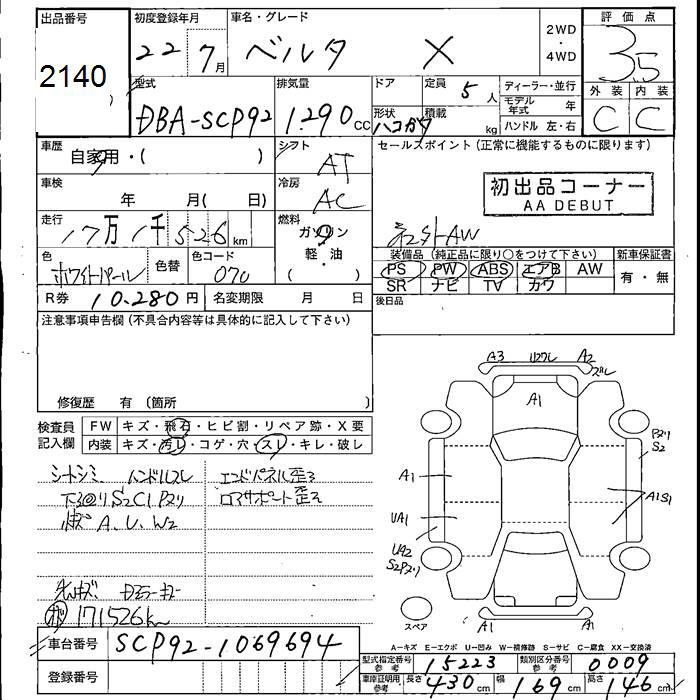 出品番号
2140
)
初度登録年月
22 7月
車名・グレード
ベルタ X
2WD
・
4WD
評価点
3.5
外装 内装
C C
型式
DBA-SCP92
排気量
1,290 cc
ドア
定員 5人
形状 ハコガタ
積載 kg
ディーラー・並行
モデル年式 年
ハンドル 左・右
車歴
自家用・( )
シフト
AT
車検
年 月( 日)
冷房
AC
走行
17万1千526km
燃料
ガソリン
軽・油
( )
色
ホワイトパール
色替
色コード
070
R券 10,280円
名変期限 月 日
セールスポイント (正常に機能するものに限ります)
初出品コーナー
AA DEBUT
社外AW
装備品 (純正品に限り○をつけて下さい)
PS PW ABS エアB AW
SR ナビ TV カワ
新車保証書
有・無
後日品
注意事項申告欄 (不具合内容等は具体的に記入して下さい)
修復歴 有 (箇所 )
検査員記入欄
FW キズ・飛石・ヒビ割・リペア跡・X要
内装 キズ・汚レ・コゲ・穴・スレ・キレ・破レ
シートシミ ハンドルスレ
下回りS2C1Pズリ
A.U.W2
エンドパネル歪ミ
ロアサポート歪ミ
171526km
車台番号 SCP92-1069694
登録番号
A3 A2
ズレ
A1
Pズリ
S2
A1
A1S1
UA1
UA2
S2Pズリ
スペア
A1 A1
A-キズ E-エクボ U-凹み W-補修跡 S-サビ C-腐食 XX-交換済
型式指定番号 参考 15223
類別区分番号 参考 0009
車庫証明用 参考 長さ 430cm 幅 169cm 高さ 146cm